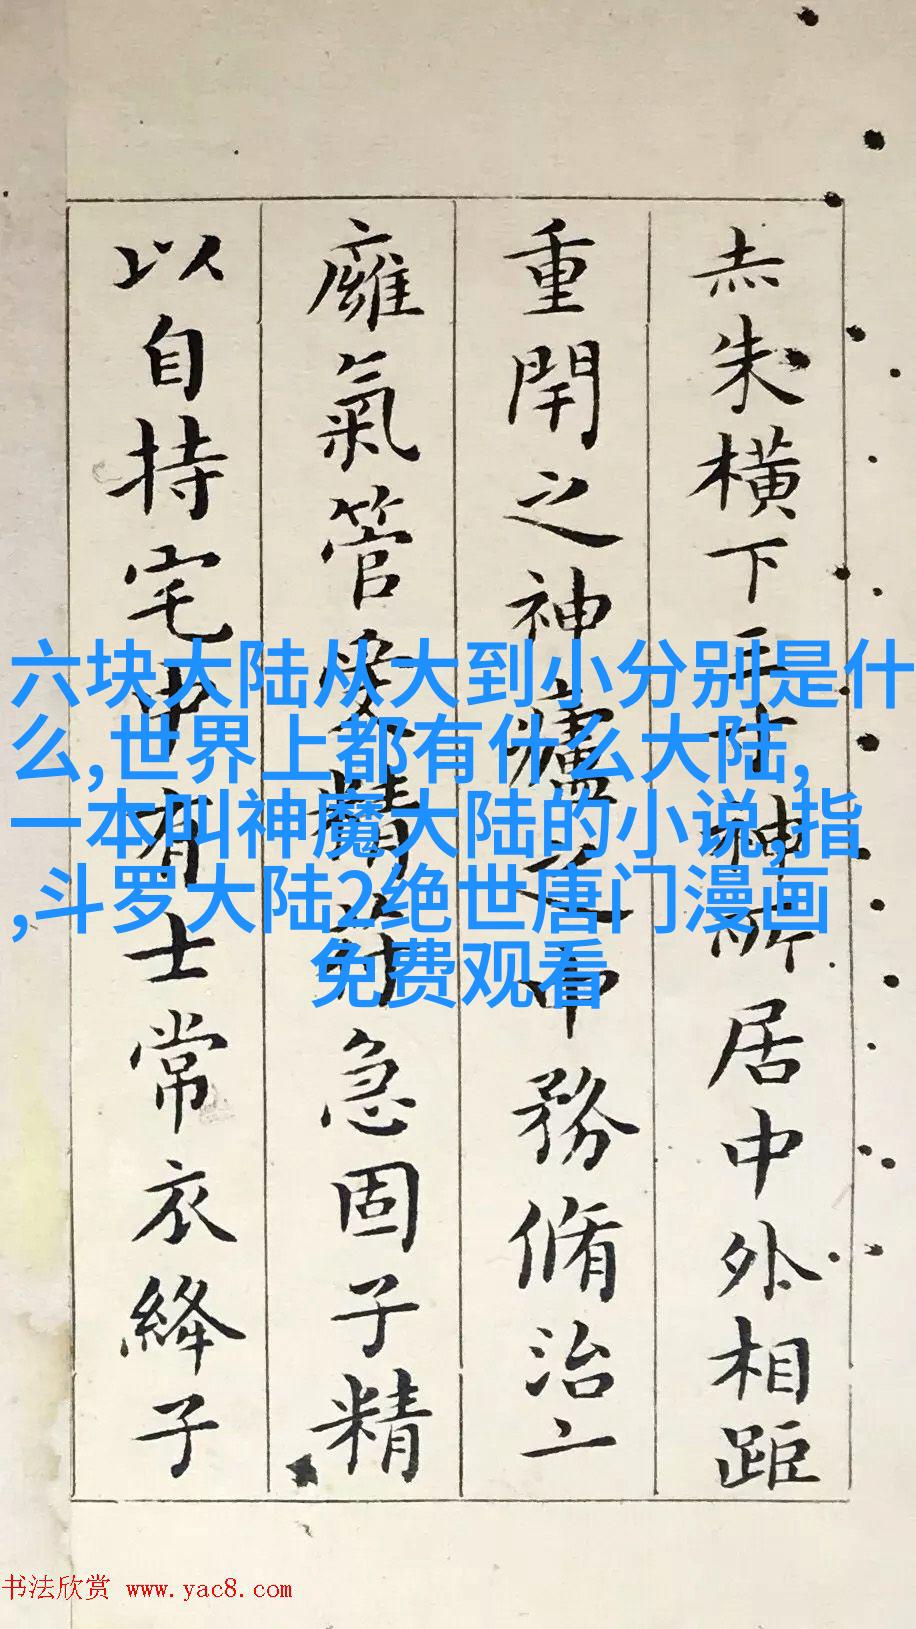 六块大陆从大到小分别是什
么,世界上都有什么大陆,
一本叫神魔大陆的小说,指
,斗罗大陆2绝世唐门漫画
免费观看
朱横下三寸神所居中外相距
重闭之神庐之中务脩治二
廱氣管受精苻急固子精
以自持宅中有士常衣絳子
书法欣赏 www.yac8.com